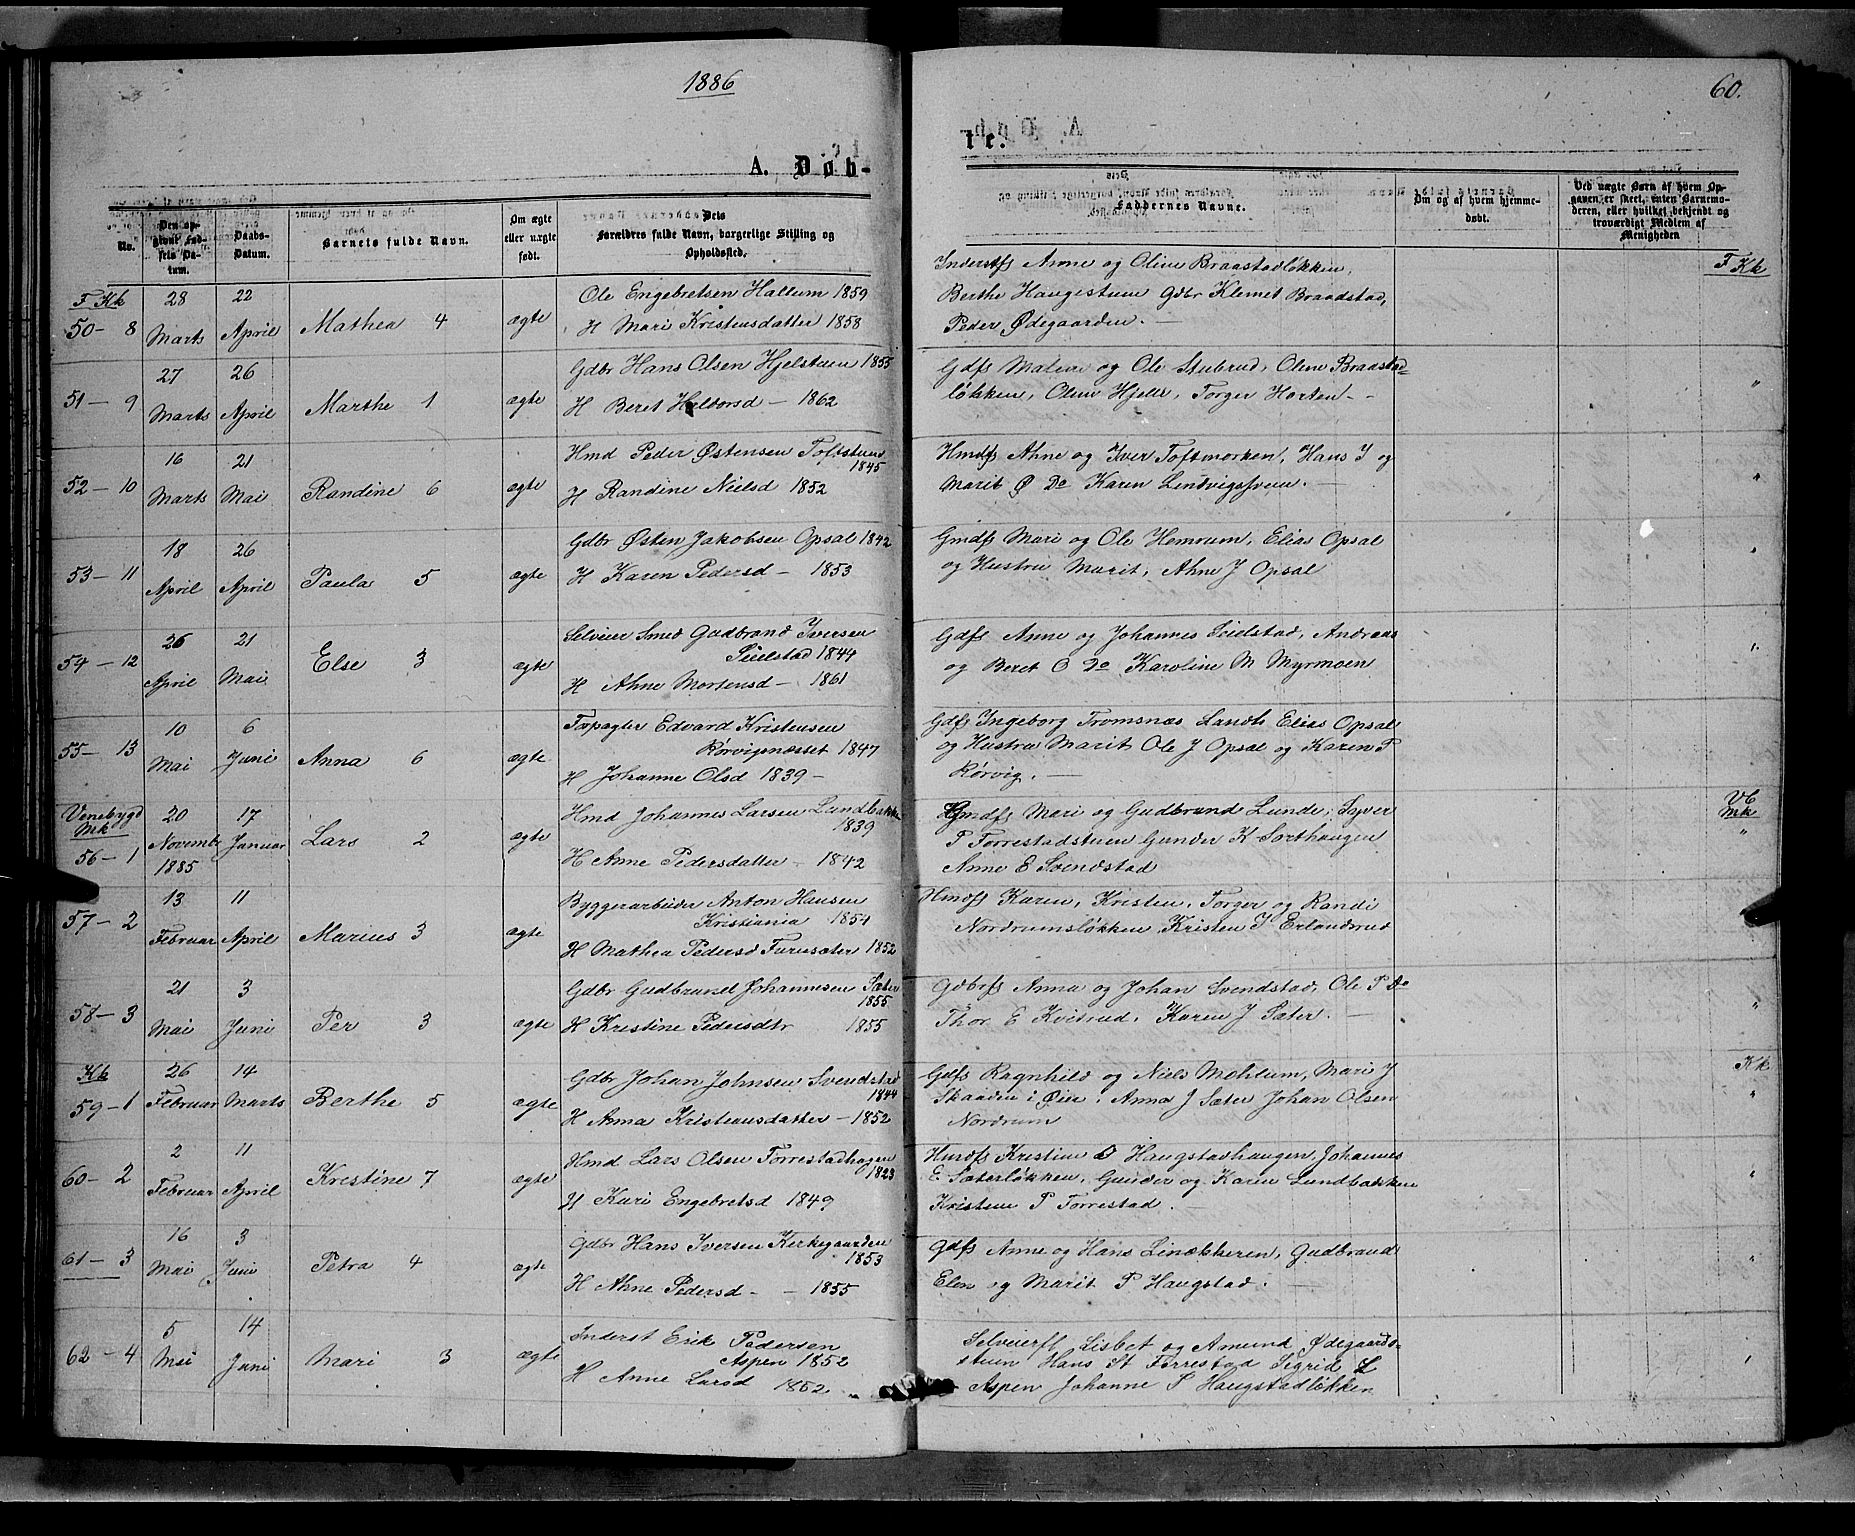 1886
A. Døb-
No.
Den opgivne Fødsels Datum.
Daabs-Datum.
Barnets fulde Navn.
Om ægte eller uægte født.
Dets Forældres fulde Navn, borgerlige Stilling og Opholdssted.
F Kk
50 - 8
28 Marts
22 April
Mathea 4
ægte
Ole Engebretsen Hallum 1859
H Mari Kristensdatter 1858
51 - 9
27 Marts
26 April
Marthe 1
ægte
Gdbr Hans Olsen Hjelstuen 1855
H Beret Halvorsd - 1862
52 - 10
16 Marts
21 Mai
Randine 6
ægte
Hmd Peder Østensen Toftstuen
1845
H Randine Nielsd 1852
53 - 11
18 April
26 April
Paula 5
ægte
Gdbr Østen Jakobsen Opsal 1842
H Karen Pedersd - 1853
54 - 12
26 April
21 Mai
Else 3
ægte
Selveier Smed Gudbrand Iversen
Seielstad 1844
H Ahne Mortensd - 1861
55 - 13
10 Mai
6 Juni
Anna 6
ægte
Forpagter Edvard Kristensen
Rørvignæsset 1847
H Johanne Olsd 1839 -
Venebygd
Mk
56 - 1
20 Novembr 1885
17 Januar
Lars 2
ægte
Hmd Johannes Larsen Lundbakken
1839
H Anne Pedersdatter - 1842
57 - 2
13 Februar
11 April
Marius 3
ægte
Byggearbeider Anton Hansen
Kristiania 1854
H Mathea Pedersd Furusæter 1852
58 - 3
21 Mai
3 Juni
Per 3
ægte
Gdbr Gudbrand Johannesen Sæter
1855
H Kristine Pedersdtr 1855
Kk
59 - 1
26 Februar
14 Marts
Berthe 5
ægte
Gdbr Johan Johnsen Svendstad
1844
H Anna Kristiansdatter - 1852
60 - 2
2 Februar
11 April
Kristine 7
ægte
Hmd Lars Olsen Forrestadhagen
1823
H Kari Engebretsd 1849
61 - 3
16 Mai
3 Juni
Petra 4
ægte
Gdbr Hans Iversen Kirkegaarden
1853
H Ahne Pedersd - - 1855
62 - 4
5 Mai
14 Juni
Mari 3
ægte
Inderst Erik Pedersen
Aspen 1852
H Anne Larsd 1852
60.
te.
Faddernes Navne.
Om og af hvem hjemmedøbt.
Ved uægte Børn af hvem Opgaven er skeet, enten Barnemoderen, eller hvilket bekjendt og troværdigt Medlem af Menigheden
F Kk
Inderstfs Anne og Oline Braastadløkken,
Berthe Haugestuen Gdbr Klemet Braadstad,
Peder Ødegaarden. -
Gdfs Malene og Ole Stubrud, Olene Braastad=
løkken, Oline Hjelle, Torger Horten - -
Hmdfs Ahne og Iver Toftmorken, Hans I og
Marit Ø Do Karen Lindvigssveen. -
Gmdfs Mari og Ole Hemrum, Elias Opsal
og Hustru Marit, Ahne J Opsal
Gdfs Anne og Johannes Seielstad, Andreas
og Beret O Do Karoline M Myrmoen
Gdfs Ingeborg Tromsnæs Landh Elias Opsal
og Hustru Marit Ole J Opsal og Karen P
Rørvig. -
Vb
Mk
Gmdfs Mari og Gudbrand Lunde, Syver
P Forrestadstuen Gunder K Sorthaugen
Anne E Svendstad
Hmdfs Karen, Kristen, Torger og Randi
Nordrumsløkken, Kristen S Erlandsrud
Gdbrfs Anna og Johan Svendstad, Ole P Do
Thor E Kvitrud, Karen J Sæter. -
Kk
Gdfs Ragnhild og Niels Mehlum, Mari J
Skaaden i Øier, Anna J Sæter Johan Olsen
Nordrum
Hmdfs Kristine O Haugstadhaugen, Johannes
E Sæterløkken, Gunder og Karen Lundbakken
Kristine P Forrestad. -
Gdfs Anne og Hans Linækkeren, Gudbrand
Elen og Marit P Haugstad. -
Selveierfl Lisbet og Amund Ødegaards=
stuen Hans St Forrestad Sigrid L
Aspen Johanne P Haugstadløkken